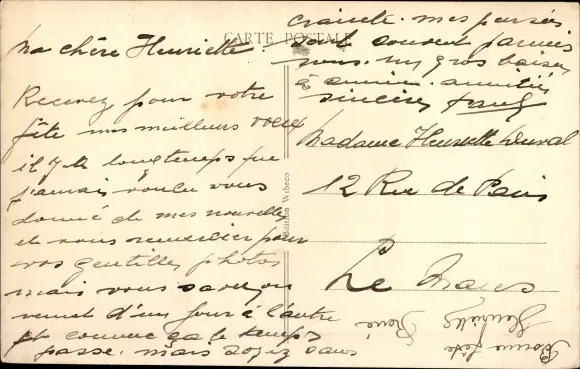 CARTE POSTALE
Ma chère Henriette.
Recevez pour votre
fête mes meilleurs voeux
il y a longtemps que
j'aurais voulu vous
donné de mes nouvelles
et vous remercier pour
vos gentilles photos
mais vous savez on
remet d'un jour à l'autre
et comme ça le temps
passe. mais soyez sans
crainte. mes pensées
sont souvent parmis
vous. un gros baiser
à amitiés
sincères
Madame Henriette Duval
12 Rue de Paris
Le Mans
Edition Wibeco
Bonne fête
Henriette
René